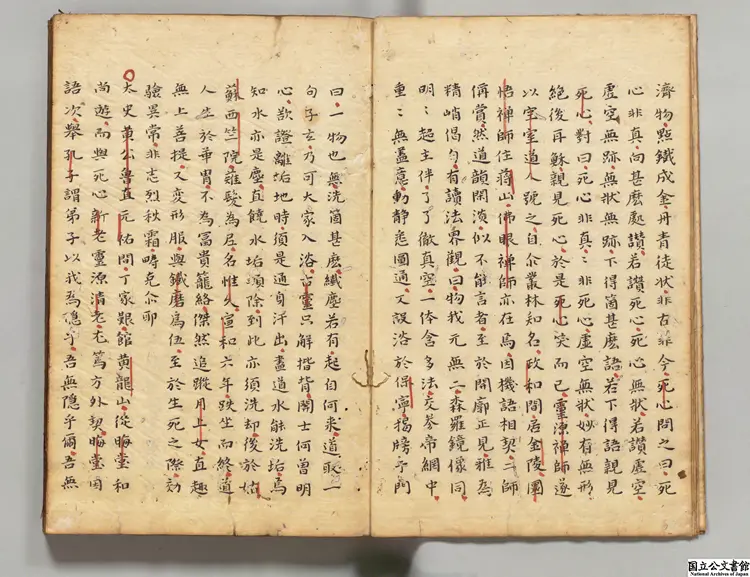 濟物點鐵成金丹青徒狀非古非今死心問之曰死
心非真向甚麼處讚若讚死心死心無狀若讚虛空
虛空無跡無狀無跡下得箇甚麼語若下得語親見
死心對曰死心非真〻非死心虛空無狀妙有無形
絕後再蘇親見死心於是死心笑而已靈源禪師遂
以空室道人號之自尒叢林知名政和間居金陵圜
悟禪師住蔣山佛眼禪師亦在焉因機語相契二師
稱賞然道韻閑淡似不能言者至於開廓正見雅為
精峭偈句有讀法界觀曰物我元無二森羅鏡像同
明〻超主伴了了徹真空一體含多法交參帝網中
重〻無盡意動靜悉圓通又設浴於保寧揭牓于門
曰一物也無洗箇甚麼纖塵若有起自何來道取一
句子玄乃可大家入浴古靈只解揩背開士何曾明
心欲證離垢地時須是通身汗出盡道水能洗垢焉
知水亦是塵直饒水垢頓除到此亦須洗却後於姑
蘇西竺院薙髮為尼名惟久宣和六年趺坐而終道
人生於華胄不為富貴籠絡傑然追蹤月上女直趣
無上菩提又變形服與鐵磨為伍至於生死之際効
驗異常非志烈秋霜疇克尒耶
太史黃公魯直元祐間丁家艱館黃龍山從晦堂和
尚遊而與死心新老靈源清老尤篤方外契晦堂因
語次舉孔子謂弟子以我為隱乎吾無隱乎爾吾無
国立公文書館
National Archives of Japan